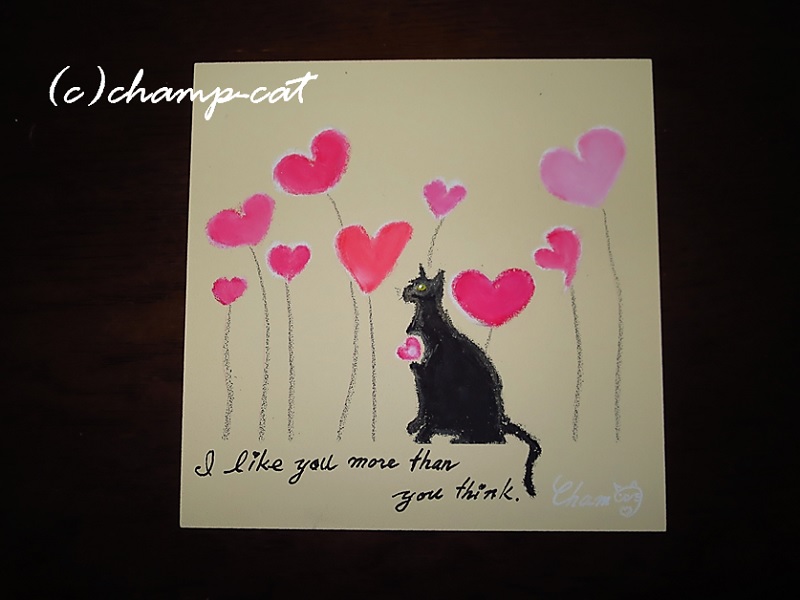 (c)champ-cat
I like you more than
you think.
Cham